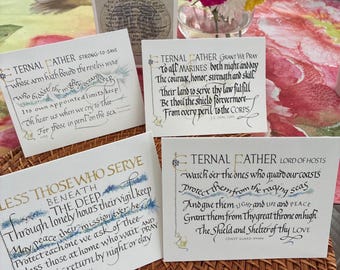 ETERNAL FATHER STRONG TO SAVE
Whose arm hath bound the restless wave
Its own appointed limits keep
Oh hear us when we cry to thee
For those in peril on the sea
ETERNAL FATHER GRANT WE PRAY
To all MARINES both night and day
The courage, honor, strength and skill
Their land to serve thy law fulfill
Be thou the Shield forevermore
From every peril to the CORPS
BLESS THOSE WHO SERVE
BENEATH
THE DEEP
Through lonely hours their vigil keep
May peace their mission ever be
Protect each one we ask of thee
those at home who wait and pray
return by night or day
ETERNAL FATHER LORD OF HOSTS
Watch o'er the ones who guard our coasts
Protect them from the raging seas
And give them LIGHT and LIFE and PEACE
Grant them from Thy great throne on high
The Shield and Shelter of thy LOVE
COAST GUARD HYMN